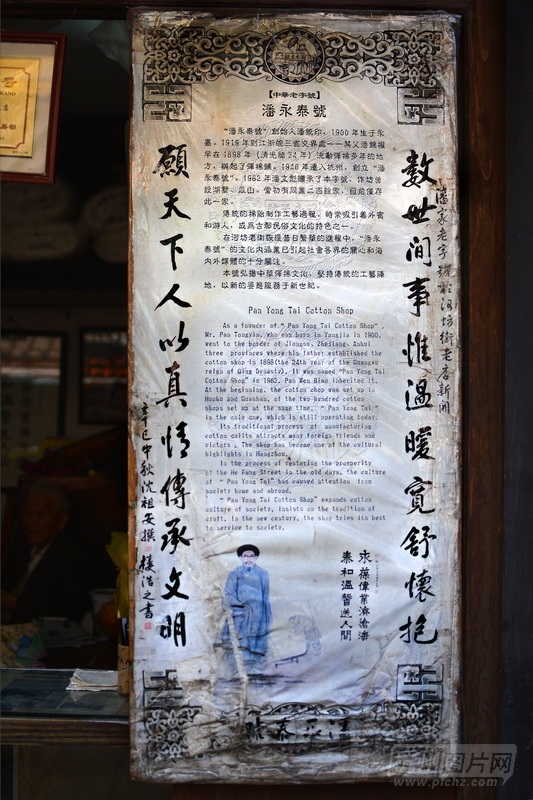 【中華老字號】
潘永泰號
“潘永泰號”創始人潘統印，1900年生于永
嘉，1918年到江浙皖三省交界處——其父潘錦權
早在1898年（清光緒24年）流動彈棉多年的地
方，辦起了彈棉鋪。1946年遷入杭州，創立“潘
永泰號”。1962年潘文彪繼承了本字號，作坊曾
設湖墅、瓜山，當初有同業二百餘家，目前僅存
此一家。
傳統的棉胎制作工藝過程，時常吸引着外賓
和游人，成爲古都民俗文化的特色之一。
在河坊老街恢復昔日繁華的進程中，“潘永
泰號”的文化内涵業已引起社會各界的關心和海
内外媒體的十分關注。
本號弘揚中華彈棉文化，堅持傳統的工藝陣
地，以新的姿態服務于新世紀。
Pan Yong Tai Cotton Shop
As a founder of " Pan Yong Tai Cotton Shop" ,
Mr. Pan Tongyin, who was born in Yongjia in 1900,
went to the border of Jiangsu, Zhejiang, Anhui
three provinces where his father established the
cotton shop in 1898(the 24th year of the Guangxu
reign of Qing Dynasty). It was named "Pan Yong Tai
Cotton Shop" in 1962, Pan Wen Biao inherited it.
At the beginning, the cotton shop was set up in
Hushu and Guashan, of the two hundred cotton
shops set up at the same time, " Pan Yong Tai "
is the only one, which is still operating today.
Its traditional process of manufacturing
cotton quilts attracts many foreign friends and
The shop has become one of the cultural
highlights in Hangzhou.
In the process of restoring the prosperity
of the He Fang Street in the old days, the culture
of " Pan Yong Tai" has caused attention from
society home and abroad.
" Pan Yong Tai Cotton Shop" expands cotton
culture of society, insists on the tradition of
craft, in the new century, the shop tries its best
to service to society.
數世間事惟溫暖寬舒懷抱
願天下人以真情傳承文明
潘家老字號於河坊街老店新開
辛巳中秋沈祖安撰 樓浩之書
永葆偉業濟滄海
泰和溫馨送人間
潘永泰號
图片网
www.pfchz.com